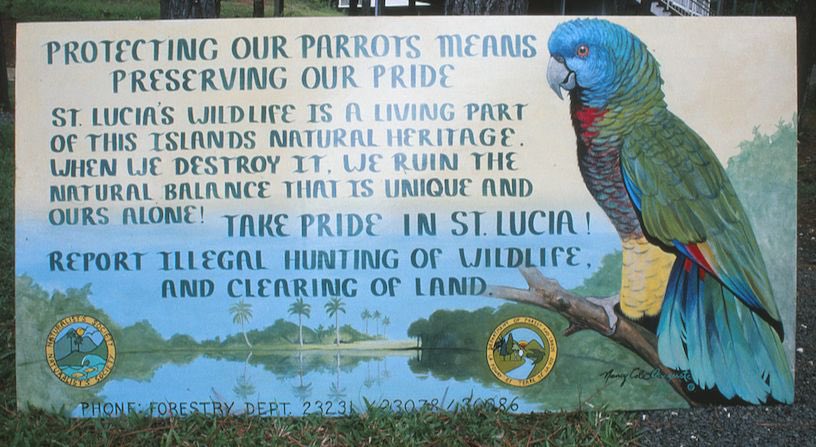 PROTECTING OUR PARROTS MEANS
PRESERVING OUR PRIDE
ST. LUCIA'S WILDLIFE IS A LIVING PART
OF THIS ISLANDS NATURAL HERITAGE.
WHEN WE DESTROY IT, WE RUIN THE
NATURAL BALANCE THAT IS UNIQUE AND
OURS ALONE! TAKE PRIDE IN ST. LUCIA!
REPORT ILLEGAL HUNTING OF WILDLIFE,
AND CLEARING OF LAND
NATURALISTS SOCIETY
NATURALISTS SOCIETY
DEPARTMENT OF
PHONE: FORESTRY DEPT. 23231 / 23078 /
Nancy